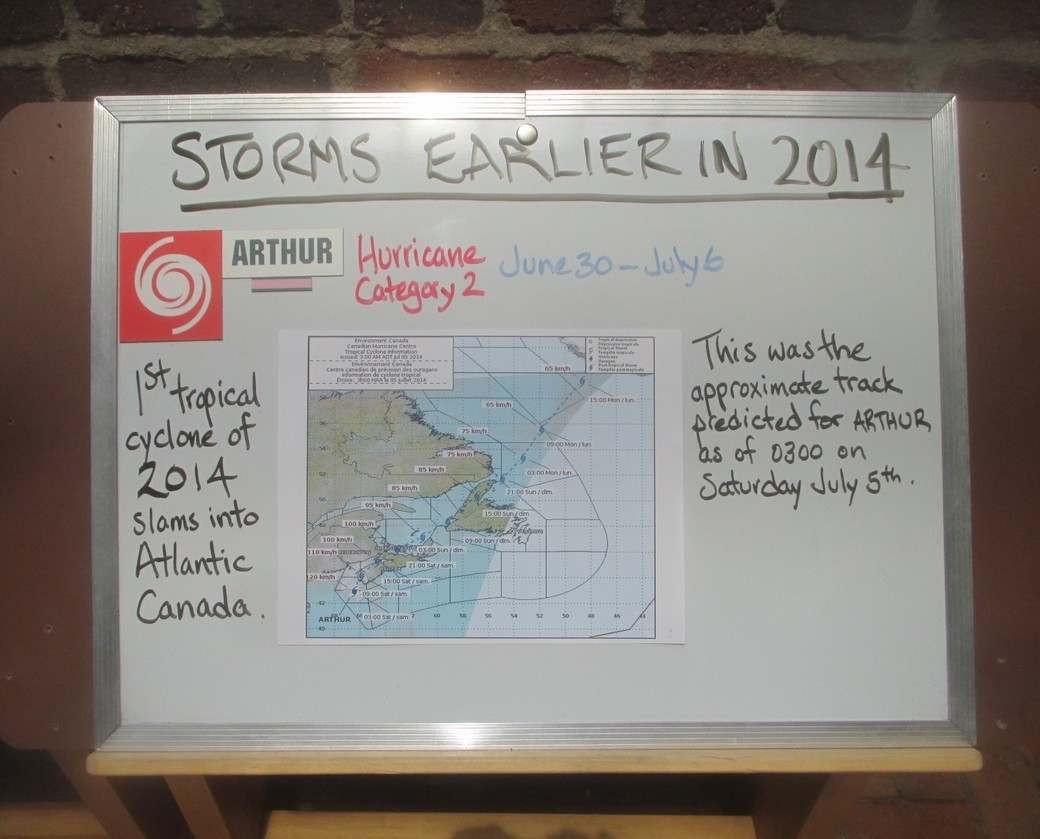 STORMS EARLIER IN 2014
ARTHUR
Hurricane
Category 2
June 30 - July 6
1st tropical
cyclone of
2014
slams into
Atlantic
Canada.
Environment Canada
Canadian Hurricane Centre
Tropical Cyclone Information
Issued: 3:00 AM ADT Jul 05 2014
Environment Canada
Centre canadien de prévision des ouragans
Information de cyclone tropical
65 km/h
15:00 Mon / lun.
65 km/h
75 km/h
09:00 Mon / lun.
75 km/h
85 km/h
03:00 Mon / lun.
85 km/h
21:00 Sun / dim.
95 km/h
15:00 Sun / dim.
100 km/h
09:00 Sun / dim.
100 km/h
03:00 Sun / dim.
110 km/h
21:00 Sat / sam.
120 km/h
15:00 Sat / sam.
09:00 Sat / sam.
03:00 Sat / sam.
ARTHUR
This was the
approximate track
predicted for ARTHUR
as of 0300 on
Saturday July 5th.